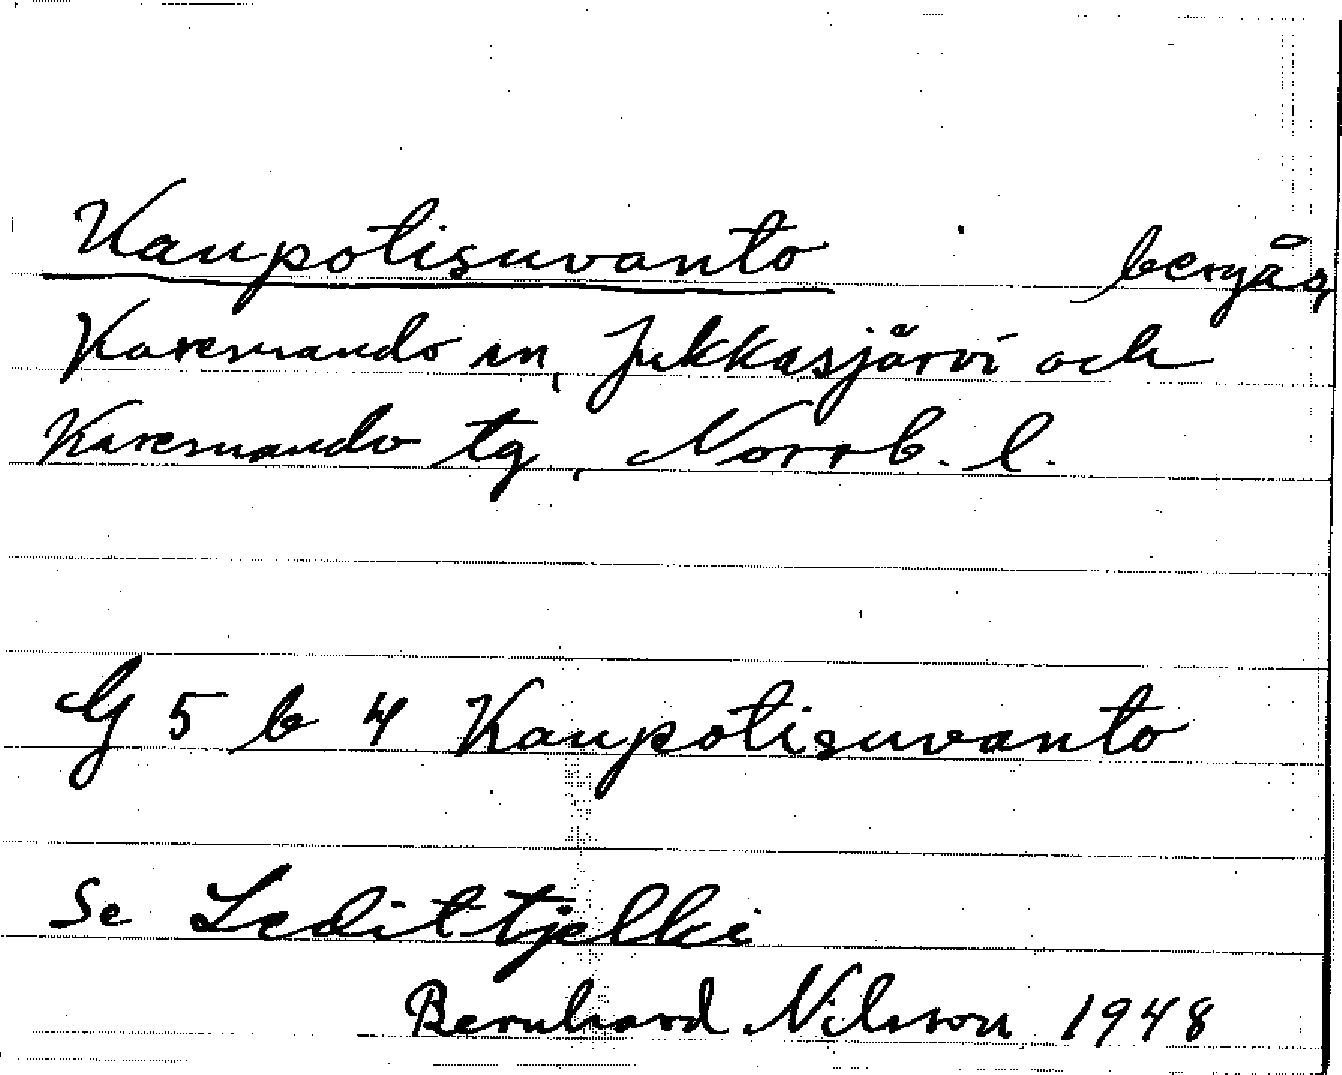 Kaupotisuvanto bergås,
Karesuando sn, Jukkasjärvi och
Karesuando tg, Norrb. l.
G 5 b 4 Kaupotisuvanto
Se Ledittjelki
Bernhard Nilsson 1948